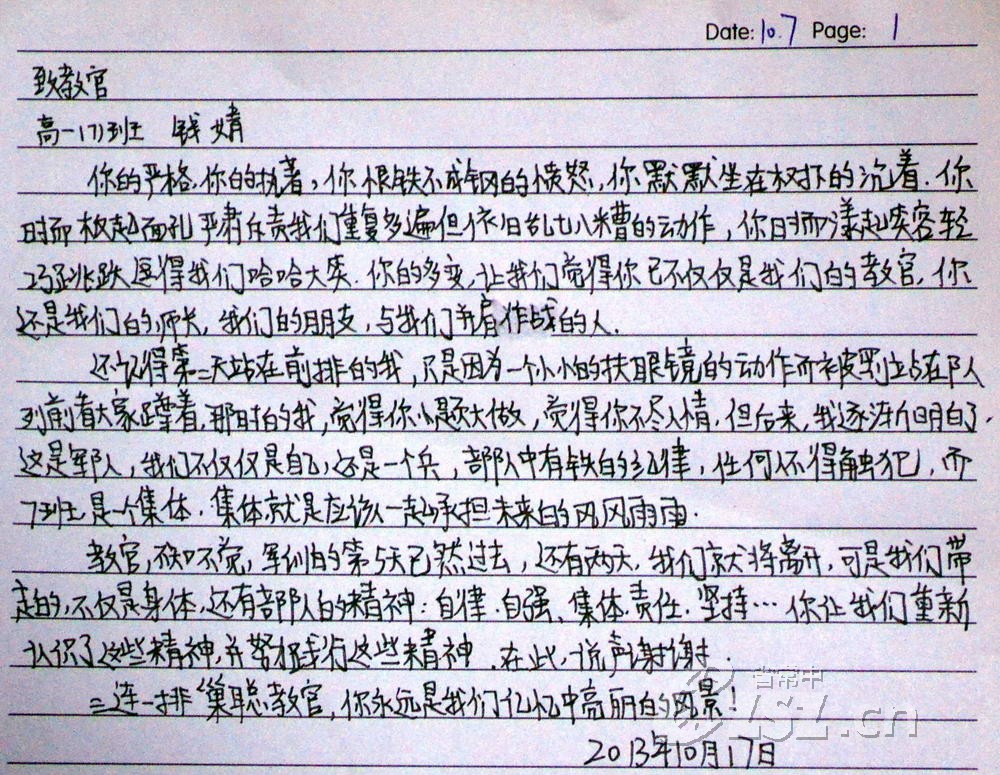 Date: 10.7 Page: 1
致教官
高一(7)班 钱婧
你的严格,你的执著,你恨铁不成钢的愤怒,你默默坐在权扑的沉着.你
时而板起面孔严肃斥责我们重复多遍但依旧乱七八糟的动作,你时而漾起笑容轻
巧跳跃逗得我们哈哈大笑.你的多变,让我们觉得你已不仅仅是我们的教官,你
还是我们的师长,我们的朋友,与我们并肩作战的人.
还记得第二天站在前排的我,只是因为一个小小的扶眼镜的动作而被罚站在队
列前看大家蹲着,那时的我,觉得你小题大做,觉得你不尽人情.但后来,我逐渐明白了.
这是军队,我们不仅仅是自己,还是一个兵,部队中有铁的纪律,任何人不得触犯,而
7班是一个集体.集体就是应该一起承担未来的风风雨雨.
教官,不知不觉,军训的第5天已然过去,还有两天,我们就将离开,可是我们带
走的,不仅是身体,还有部队的精神:自律.自强.集体.责任.坚持…你让我们重新
认识了这些精神,并努力践行这些精神.在此,说声谢谢.
二连一排巢聪教官,你永远是我们记忆中亮丽的风景!
2013年10月17日
省常中
CSZ.cn